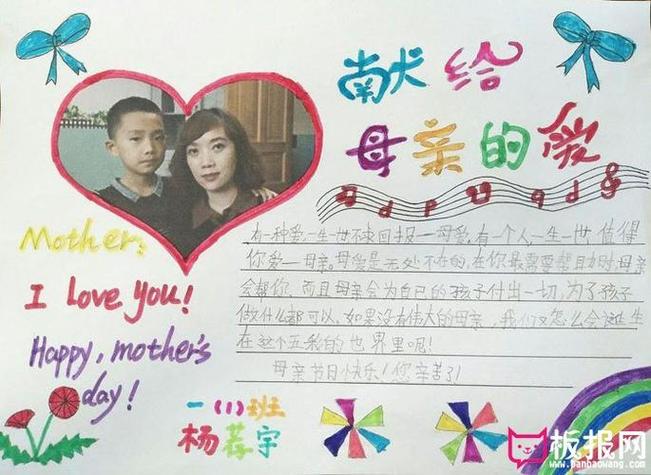 献给
母亲的爱
有一种爱一生一世不求回报——母爱。有一个人一生一世值得
你爱——母亲。母爱是无处不在的，在你最需要帮助时，母亲
会帮你。而且母亲会为自己的孩子付出一切，为了孩子
做什么都可以，如果没有伟大的母亲，我们又怎么会诞生
在这个五彩的世界里呢！
母亲节日快乐！您辛苦了！
Mother:
I love you!
Happy, mother's
day!
一(1)班
杨荐宇
板报网
www.banbaowang.com